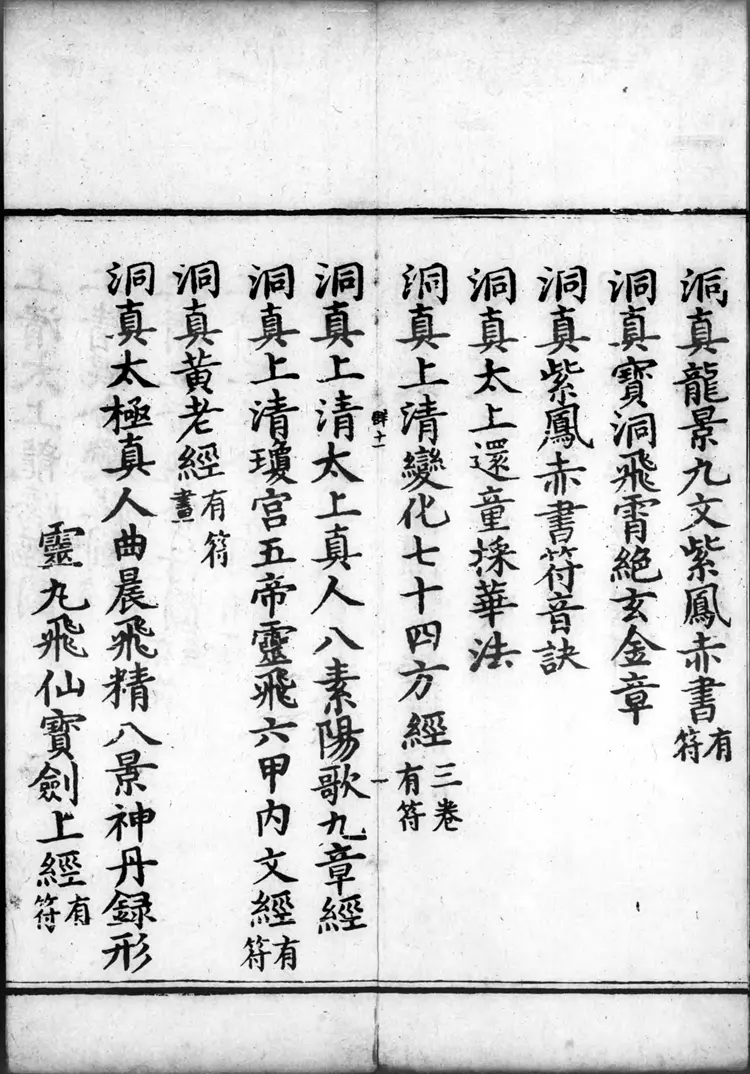 洞真龍景九文紫鳳赤書有符
洞真寶洞飛霄絕玄金章
洞真紫鳳赤書符音訣
洞真太上還童採華法
洞真上清變化七十四方經三卷有符
群十一
洞真上清太上真人八素陽歌九章經
洞真上清瓊宫五帝靈飛六甲内文經有符
洞真黃老經有符畫
洞真太極真人曲晨飛精八景神丹録形
靈丸飛仙寶劍上經有符